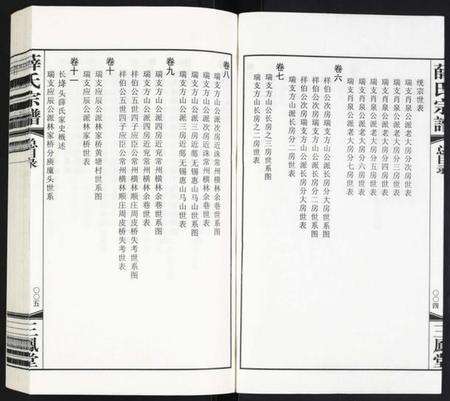 薛氏宗譜
总目录
〇〇四
三鳳堂
统宗世表
瑞支肖泉公派老大房分次房世表
瑞支肖泉公派老大房分四房世表
瑞支肖泉公派老大房分五房世表
瑞支肖泉公派老大房分七房世表
卷六
祥伯公次房瑞支方山公派长房分大房世系图
祥伯公次房瑞支方山公派长房分二房世系图
瑞支方山公派长房分大房世表
瑞支方山公派长房分二房世表
卷七
瑞支方山公长房之二房世表
瑞支方山公长房之三房世表
薛氏宗譜
总目录
〇〇五
三鳳堂
卷八
瑞支方山公派次房近珠常州横林余巷世系图
瑞支方山公派次房近珠常州横林余巷世表
瑞支方山公派三房近郁无锡惠山马山世系图
瑞支方山公派三房近郁无锡惠山马山世表
卷九
瑞支方山公派四房近兖常州横林余巷世系图
瑞支方山公派四房近兖常州横林余巷世表
祥伯公五世四子应臣公常州横林顺庄周皮桥失考世系图
祥伯公五世四子应臣公常州横林顺庄周皮桥失考世表
卷十
瑞支应辰公派林家桥黄塘村世系图
瑞支应辰公派林家桥黄塘村世表
卷十一
长埄头薛氏家史概述
瑞支应辰公派林家桥分族魔头世系